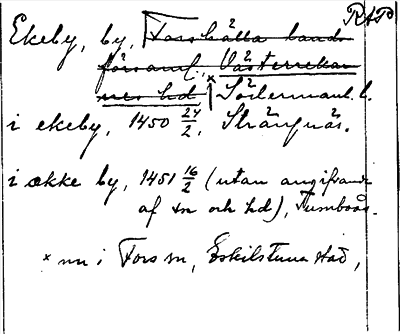 RAP
Ekeby, by, Torshälla lands-
församl., Västerrekar-
nes hd ˣ Södermanl. l.
i ekeby, 1450 24/2, Strängnäs.
i ække by, 1451 16/2 (utan angifvande
af sn och hd), Tumboås.
ˣ nu i Fors sn, Eskilstuna stad,